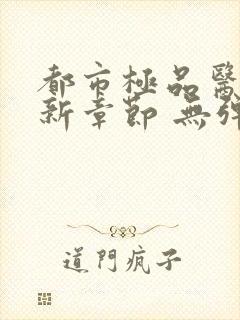 都市極品醫
新章節 無彈
道門瘋子